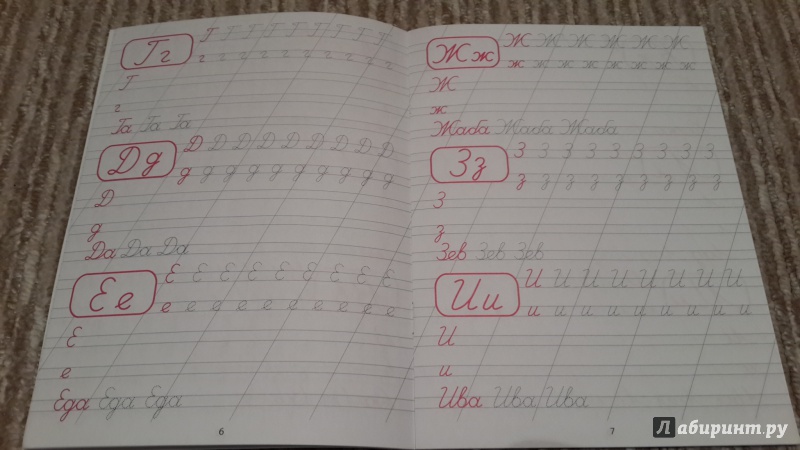 Гг Г Г Г Г Г Г Г Г Г
г г г г г г г г г
Г
г
Га Га Га
Дд Д Д Д Д Д Д Д Д Д
д д д д д д д д д
Д
д
Да Да Да
Ее Е Е Е Е Е Е Е Е Е
е е е е е е е е е
Е
е
Еда Еда Еда
6
Жж Ж Ж Ж Ж Ж Ж
ж ж ж ж ж ж ж
Ж
ж
Жаба Жаба Жаба
Зз З З З З З З З З З
з з з з з з з з з
З
з
Зев Зев Зев
Ии И И И И И И И И
и и и и и и и и и
И
и
Ива Ива Ива
7
Лабиринт.ру